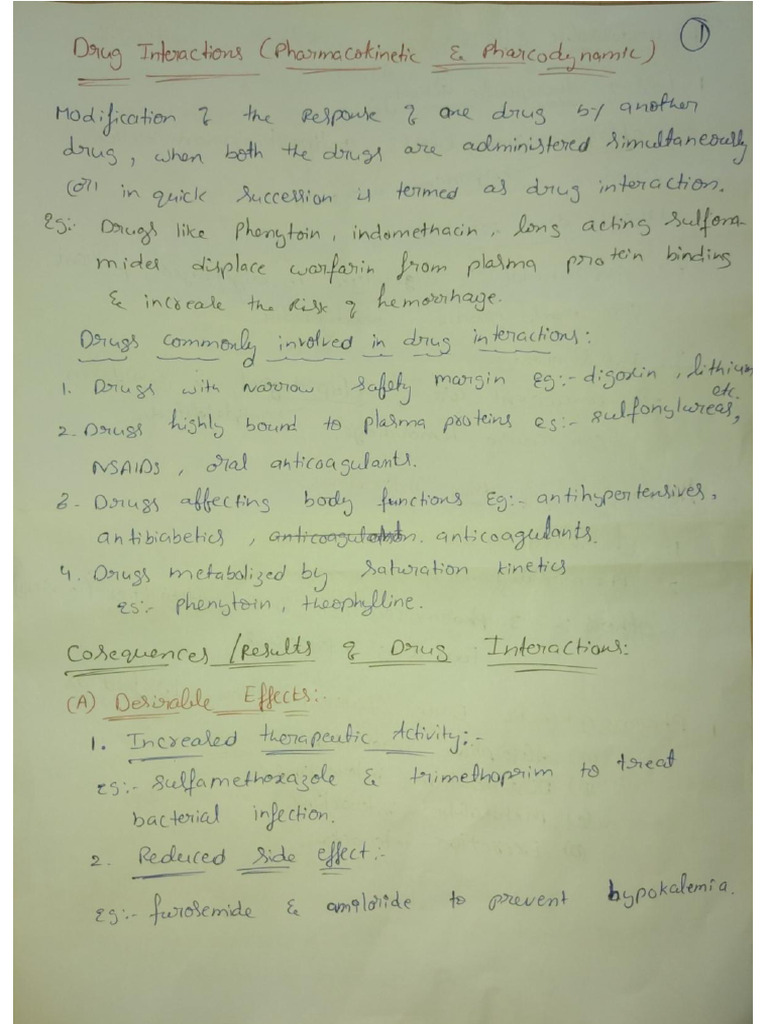 1
Drug Interactions (Pharmacokinetic & Pharcodynamic)
Modification of the Response of one drug by another
drug, when both the drugs are administered simultaneously
(or) in quick succession is termed as drug interaction.
Eg:- Drugs like Phenytoin, indomethacin, long acting sulfona-
mides displace warfarin from plasma protein binding
& increase the Risk of hemorrhage.
Drugs commonly involved in drug interactions:
1. Drugs with Narrow safety margin Eg:- digoxin, lithium
etc.
2. Drugs highly bound to plasma proteins eg:- sulfonylureas,
NSAIDs, oral anticoagulants.
3. Drugs affecting body functions Eg:- antihypertensives,
antibiabetics, anticoagulants.
4. Drugs metabolized by saturation kinetics
eg:- phenytoin, theophylline.
Cosequences/Results of Drug Interactions:
(A) Desirable Effects:-
1. Increased therapeutic Activity:-
eg:- sulfamethoxazole & trimethoprim to treat
bacterial infection.
2. Reduced side effect:-
eg:- furosemide & amiloride to prevent hypokalemia.